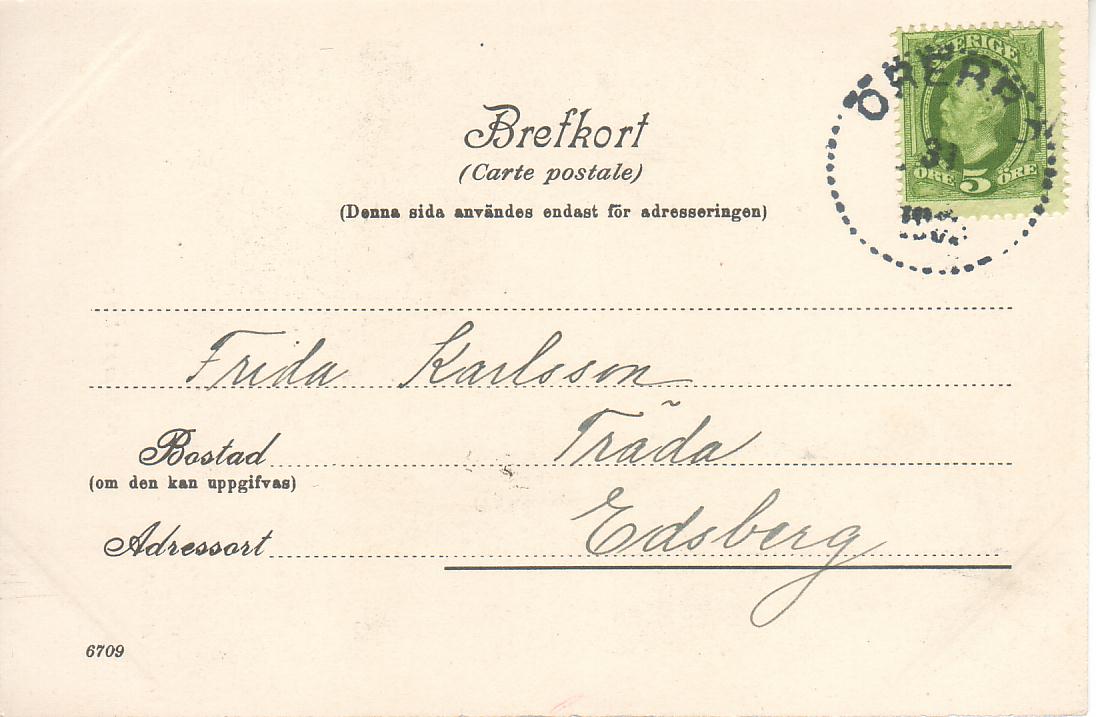 Brefkort
(Carte postale)
(Denna sida användes endast för adresseringen)
SVERIGE
ÖREBRO
31
ÖRE 5 ÖRE
Frida Karlsson
Bostad Träda
(om den kan uppgifvas)
Adressort Edsberg
6709